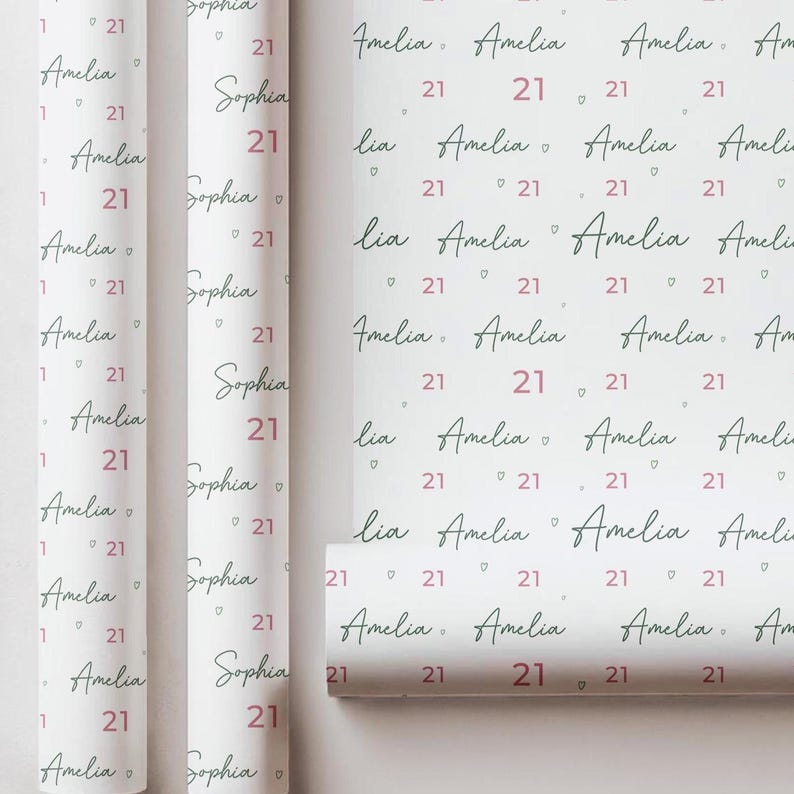 1 21
Amelia
1 21
Amelia
1 21
Amelia
1 21
Amelia
1 21
Amelia
1 21
Amelia
1 21
Amelia
1 21
Amelia
1 21
Amelia
Sophia
21
Sophia
21
Sophia
21
Sophia
21
Sophia
21
Sophia
21
Sophia
21
Sophia
21
Sophia
Amelia Amelia Amelia Am
21 21 21 21
lia Amelia Amelia Ameli
21 21 21 21
lia Amelia Amelia Ameli
21 21 21 21
Amelia Amelia Amelia Am
21 21 21 21
lia Amelia Amelia Ameli
21 21 21 21
lia Amelia Amelia Ameli
21 21 21 21 21
Amelia Amelia Amelia Am
21 21 21 21 21